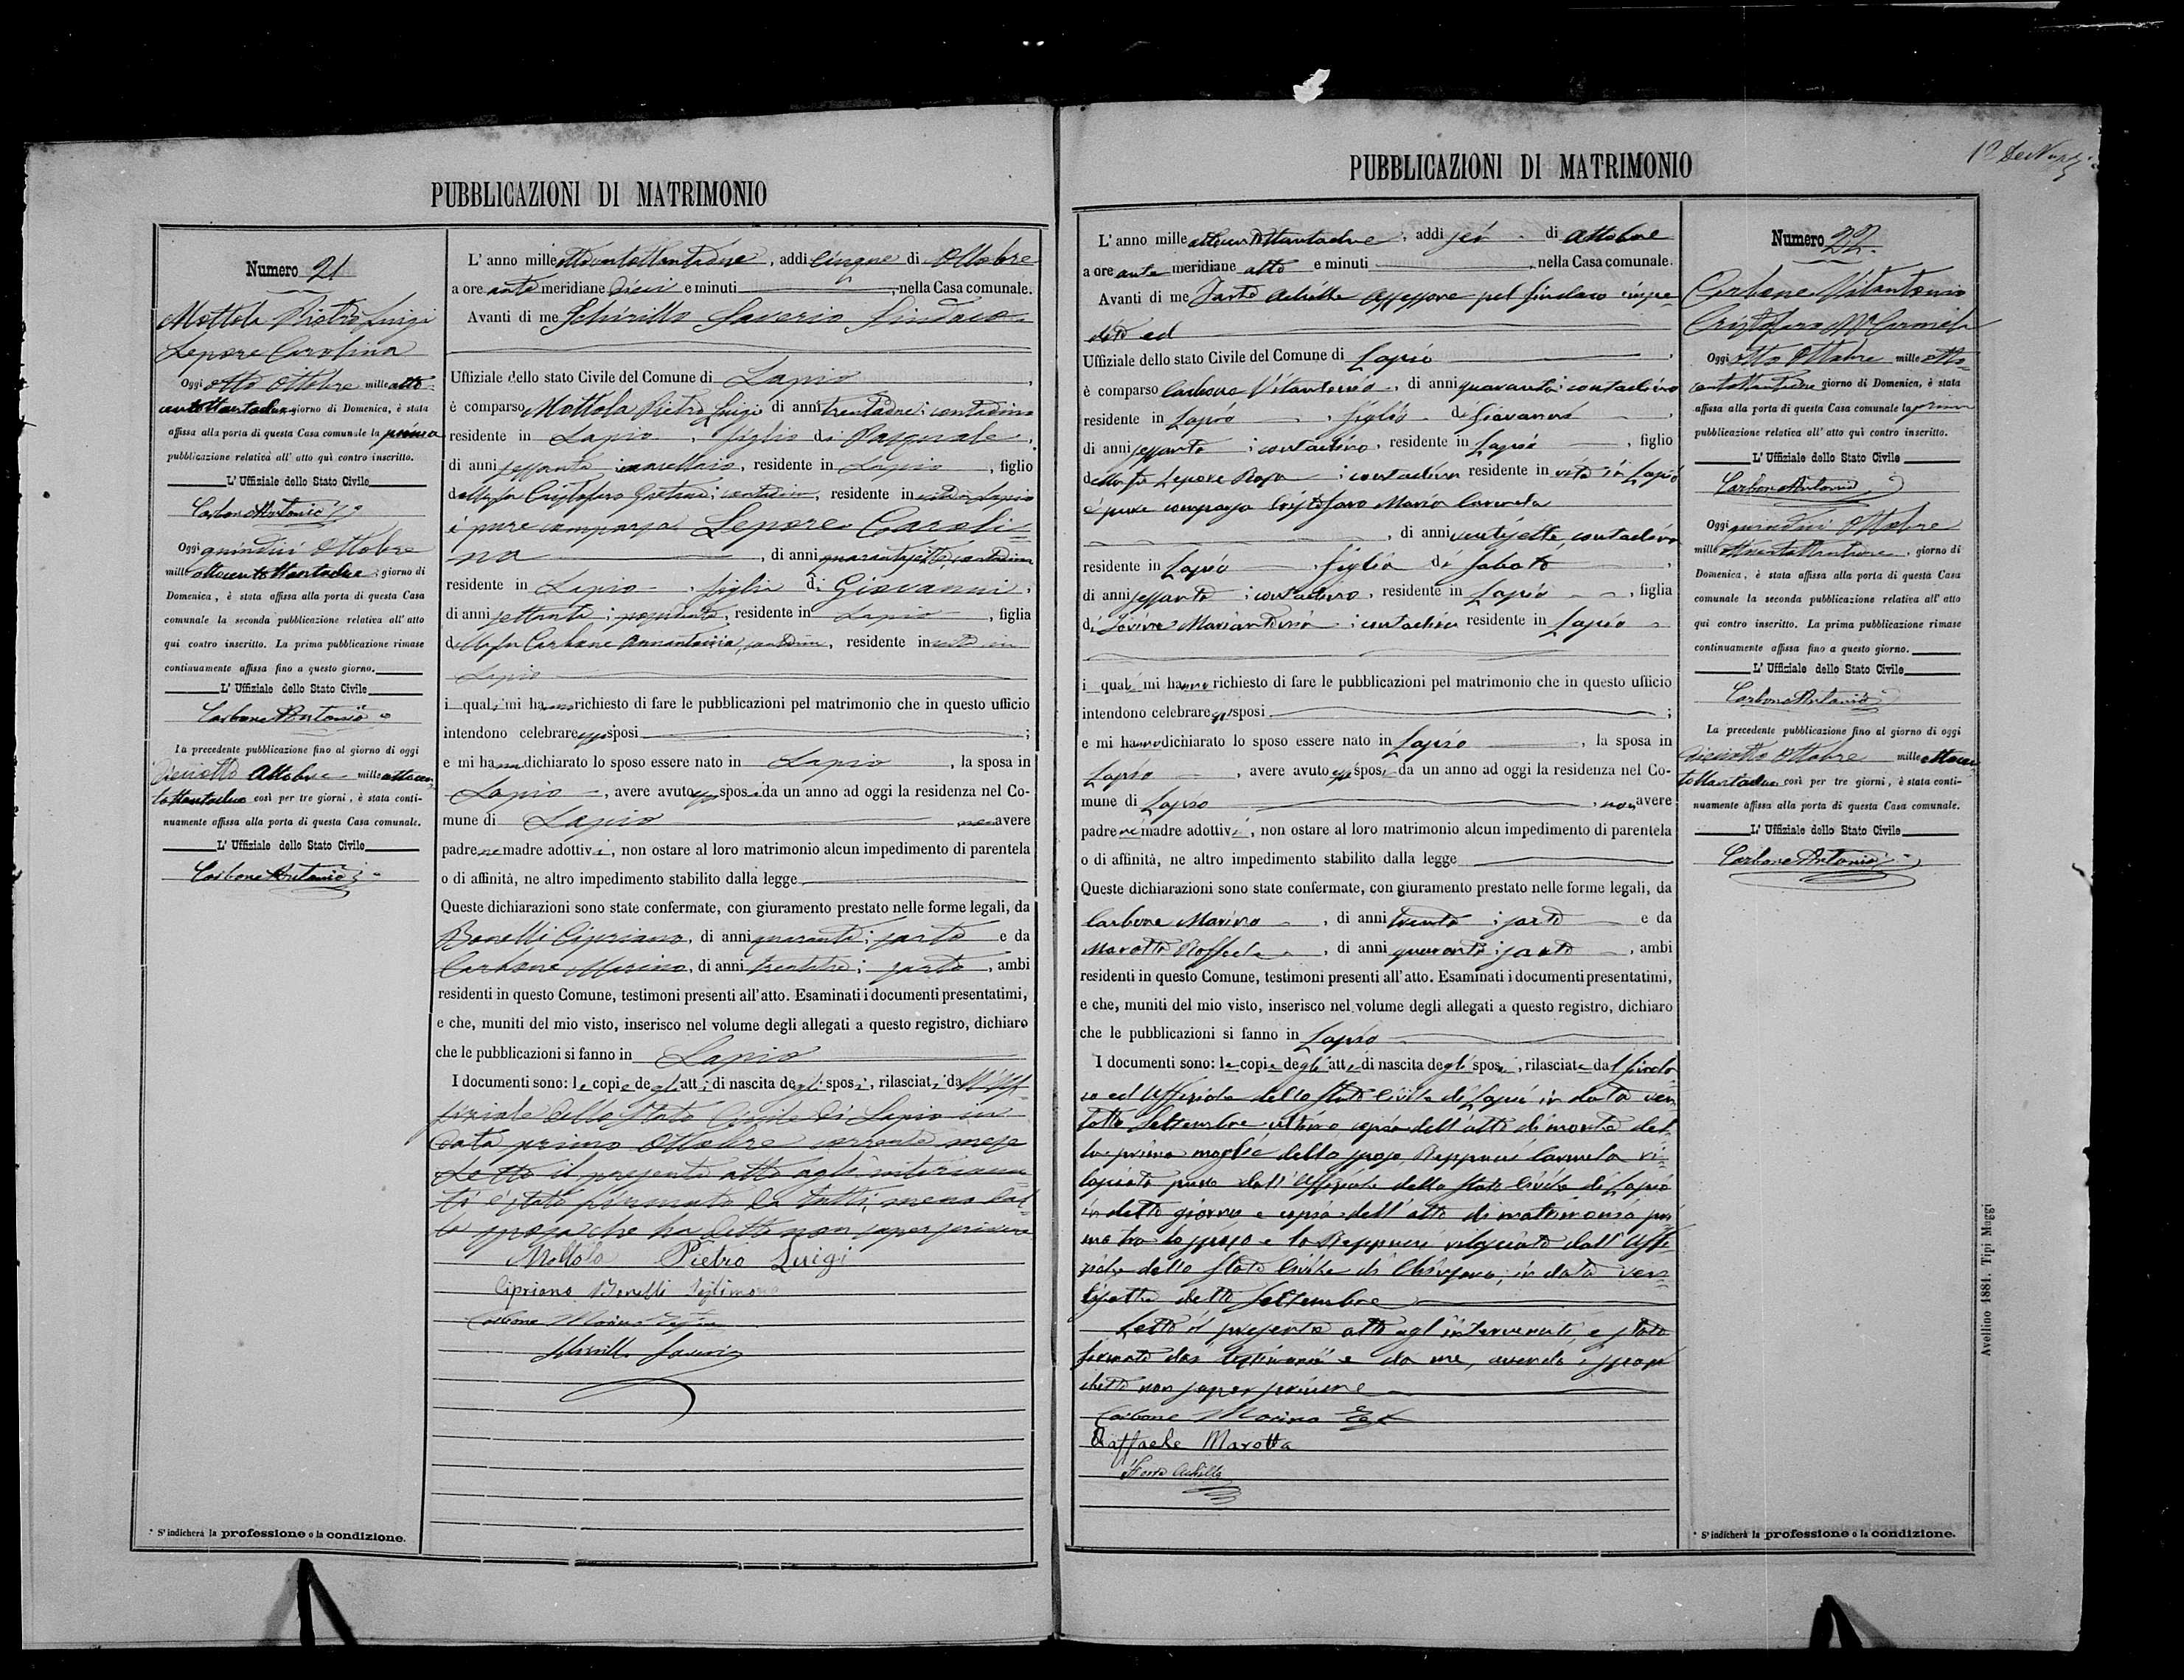 12 De Nup
PUBBLICAZIONI DI MATRIMONIO
Numero 21
Mottola Pietro Luigi
Lepore Carolina
Oggi otto Ottobre mille otto-
centottantadue giorno di Domenica, è stata
affissa alla porta di questa Casa comunale la prima
pubblicazione relativa all' atto quì contro inscritto.
L' Uffiziale dello Stato Civile
Carbone Antonio
Oggi quindici Ottobre
mille ottocentottantadue giorno di
Domenica, è stata affissa alla porta di questa Casa
comunale la seconda pubblicazione relativa all' atto
qui contro inscritto. La prima pubblicazione rimase
continuamente affissa fino a questo giorno.
L' Uffiziale dello Stato Civile
Carbone Antonio
La precedente pubblicazione fino al giorno di oggi
diciotto Ottobre mille ottocen-
tottantadue così per tre giorni, è stata conti-
nuamente affissa alla porta di questa Casa comunale.
L' Uffiziale dello Stato Civile
Carbone Antonio
* S' indicherà la professione o la condizione.
L' anno mille ottocentottantadue, addi cinque di Ottobre
a ore ante meridiane dieci e minuti , nella Casa comunale.
Avanti di me Schirillo Saverio Sindaco
Uffiziale dello stato Civile del Comune di Lapio ,
è comparso Mottola Pietro Luigi di anni trentadue; contadino
residente in Lapio , figlio di Pasquale ,
di anni sessanta , residente in Lapio , figlio
della fu Cristofaro ; contadina, residente in vita in Lapio
è pure comparsa Lepore Caroli-
na , di anni quarantasette, contadina
residente in Lapio , figlia di Giovanni ,
di anni settanta ; , residente in Lapio , figlia
della fu Carbone , contadina, residente in vita in
Lapio
i quali mi hanno richiesto di fare le pubblicazioni pel matrimonio che in questo ufficio
intendono celebrare essi sposi ;
e mi hanno dichiarato lo sposo essere nato in Lapio , la sposa in
Lapio , avere avuto essi sposi da un anno ad oggi la residenza nel Co-
mune di Lapio , non avere
padre ne madre adottivi , non ostare al loro matrimonio alcun impedimento di parentela
o di affinità, ne altro impedimento stabilito dalla legge
Queste dichiarazioni sono state confermate, con giuramento prestato nelle forme legali, da
Bonelli Cipriano, di anni quaranta ; sarto e da
Carbone Marino, di anni trentatre ; sarto , ambi
residenti in questo Comune, testimoni presenti all' atto. Esaminati i documenti presentatimi,
e che, muniti del mio visto, inserisco nel volume degli allegati a questo registro, dichiaro
che le pubblicazioni si fanno in Lapio
I documenti sono: le copie degli atti di nascita degli sposi, rilasciati dall' Uf-
fiziale dello Stato Civile di Lapio in
data primo Ottobre corrente mese
Letto il presente atto agl' intervenu-
ti è stato firmato da tutti, meno dal-
la sposa che ha detto non saper scrivere
Mottola Pietro Luigi
Cipriano Bonelli testimone
Carbone Marino
Schirillo Saverio
PUBBLICAZIONI DI MATRIMONIO
L' anno mille ottocentottantadue, addi sei di Ottobre
a ore ante meridiane otto e minuti , nella Casa comunale.
Avanti di me Achille Assessore pel Sindaco impe-
dito ed
Uffiziale dello stato Civile del Comune di Lapio ,
è comparso Carbone Vitantonio, di anni quaranta; contadino
residente in Lapio , figlio di Giovanni ,
di anni sessanta ; contadino, residente in Lapio , figlio
della fu Lepore Rosa ; contadina residente in vita in Lapio
è pure comparsa Cristofaro Maria Carmela
, di anni ventisette, contadina
residente in Lapio , figlia di Sabato ,
di anni sessanta ; contadino, residente in Lapio , figlia
di ; contadina residente in Lapio
i quali mi hanno richiesto di fare le pubblicazioni pel matrimonio che in questo ufficio
intendono celebrare essi sposi ;
e mi hanno dichiarato lo sposo essere nato in Lapio , la sposa in
Lapio , avere avuto essi sposi da un anno ad oggi la residenza nel Co-
mune di Lapio , non avere
padre ne madre adottivi , non ostare al loro matrimonio alcun impedimento di parentela
o di affinità, ne altro impedimento stabilito dalla legge
Queste dichiarazioni sono state confermate, con giuramento prestato nelle forme legali, da
Carbone Marino , di anni trenta ; sarto e da
Marotta Raffaele , di anni quaranta ; sarto , ambi
residenti in questo Comune, testimoni presenti all' atto. Esaminati i documenti presentatimi,
e che, muniti del mio visto, inserisco nel volume degli allegati a questo registro, dichiaro
che le pubblicazioni si fanno in Lapio
I documenti sono: le copie degli atti di nascita degli sposi, rilasciate dal Sinda-
co ed Uffiziale dello Stato Civile di Lapio in data ven-
totto Settembre ultimo, copia dell' atto di morte del-
la prima moglie dello sposo, Reppucci Carmela ri-
lasciata pure dall' Uffiziale dello Stato Civile di Lapio
in detto giorno e copia dell' atto di matrimonio pri-
mo tra lo sposo e la Reppucci rilasciata dall' Uffi-
ziale dello Stato Civile di Chiusano, in data ven-
tisette detto Settembre
Letto il presente atto agl' intervenuti, è stato
firmato dai testimoni e da me, avendo i sposi
detto non saper scrivere
Carbone Marino
Raffaele Marotta
Achille
Numero 22
Carbone Vitantonio
Cristofaro Ma Carmela
Oggi otto Ottobre mille otto-
centottantadue giorno di Domenica, è stata
affissa alla porta di questa Casa comunale la prima
pubblicazione relativa all' atto quì contro inscritto.
L' Uffiziale dello Stato Civile
Carbone Antonio
Oggi quindici Ottobre
mille ottocentottantadue, giorno di
Domenica, è stata affissa alla porta di questa Casa
comunale la seconda pubblicazione relativa all' atto
qui contro inscritto. La prima pubblicazione rimase
continuamente affissa fino a questo giorno.
L' Uffiziale dello Stato Civile
Carbone Antonio
La precedente pubblicazione fino al giorno di oggi
diciotto Ottobre mille ottocen-
tottantadue così per tre giorni, è stata conti-
nuamente affissa alla porta di questa Casa comunale.
L' Uffiziale dello Stato Civile
Carbone Antonio
* S' indicherà la professione o la condizione.
Avellino 1881. Tipi Maggi